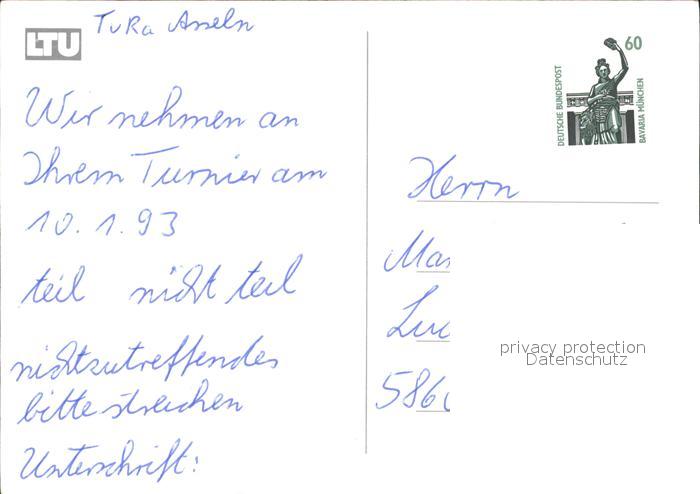 TuRa Asseln
LTU
Wir nehmen an
Ihrem Turnier am
10.1.93
teil nicht teil
nichtzutreffendes
bitte streichen
Unterschrift:
60
DEUTSCHE BUNDESPOST
BAVARIA MÜNCHEN
Herrn
privacy protection
Datenschutz